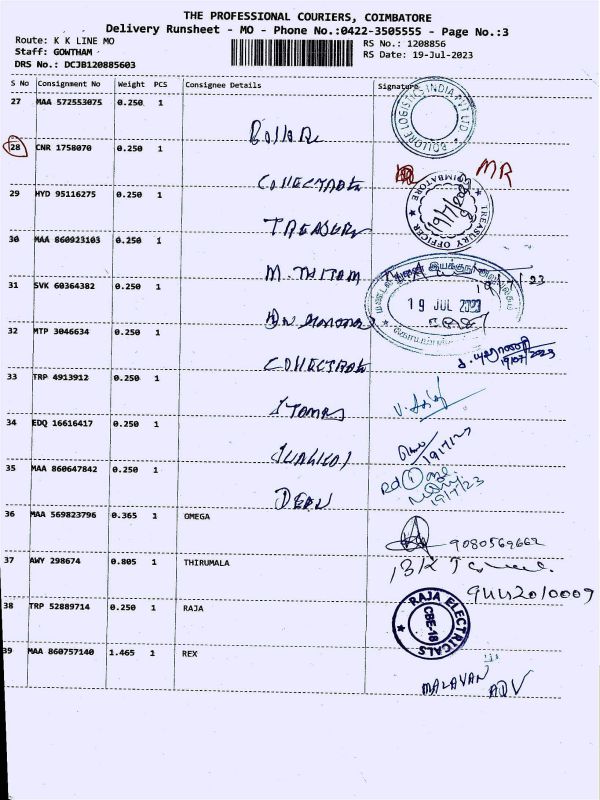 THE PROFESSIONAL COURIERS, COIMBATORE
Delivery Runsheet - MO - Phone No.:0422-3505555 - Page No.:3
Route: K K LINE MO
RS No.: 1208856
Staff: GOWTHAM
RS Date: 19-Jul-2023
DRS No.: DCJB120885603
S No Consignment No Weight PCS Consignee Details Signature
27 MAA 572553075 0.250 1
BOLLORE LOGISTICS INDIA PVT LTD.
28 CNR 1758070 0.250 1
MR
29 HYD 95116275 0.250 1
TREASURY OFFICER COIMBATORE
19/7/2023
30 MAA 860923103 0.250 1
19/7/23
31 SVK 60364382 0.250 1
19 JUL 2023
32 MTP 3046634 0.250 1
19/07/2023
33 TRP 4913912 0.250 1
34 EDQ 16616417 0.250 1
19/7/23
35 MAA 860647842 0.250 1
DEAN
Rd
19/7/23
36 MAA 569823796 0.365 1 OMEGA
9080569662
37 AWY 298674 0.805 1 THIRUMALA
9442010009
38 TRP 52889714 0.250 1 RAJA
RAJA ELECTRICALS
CBE-18
39 MAA 860757140 1.465 1 REX
MALAVAN
ADV